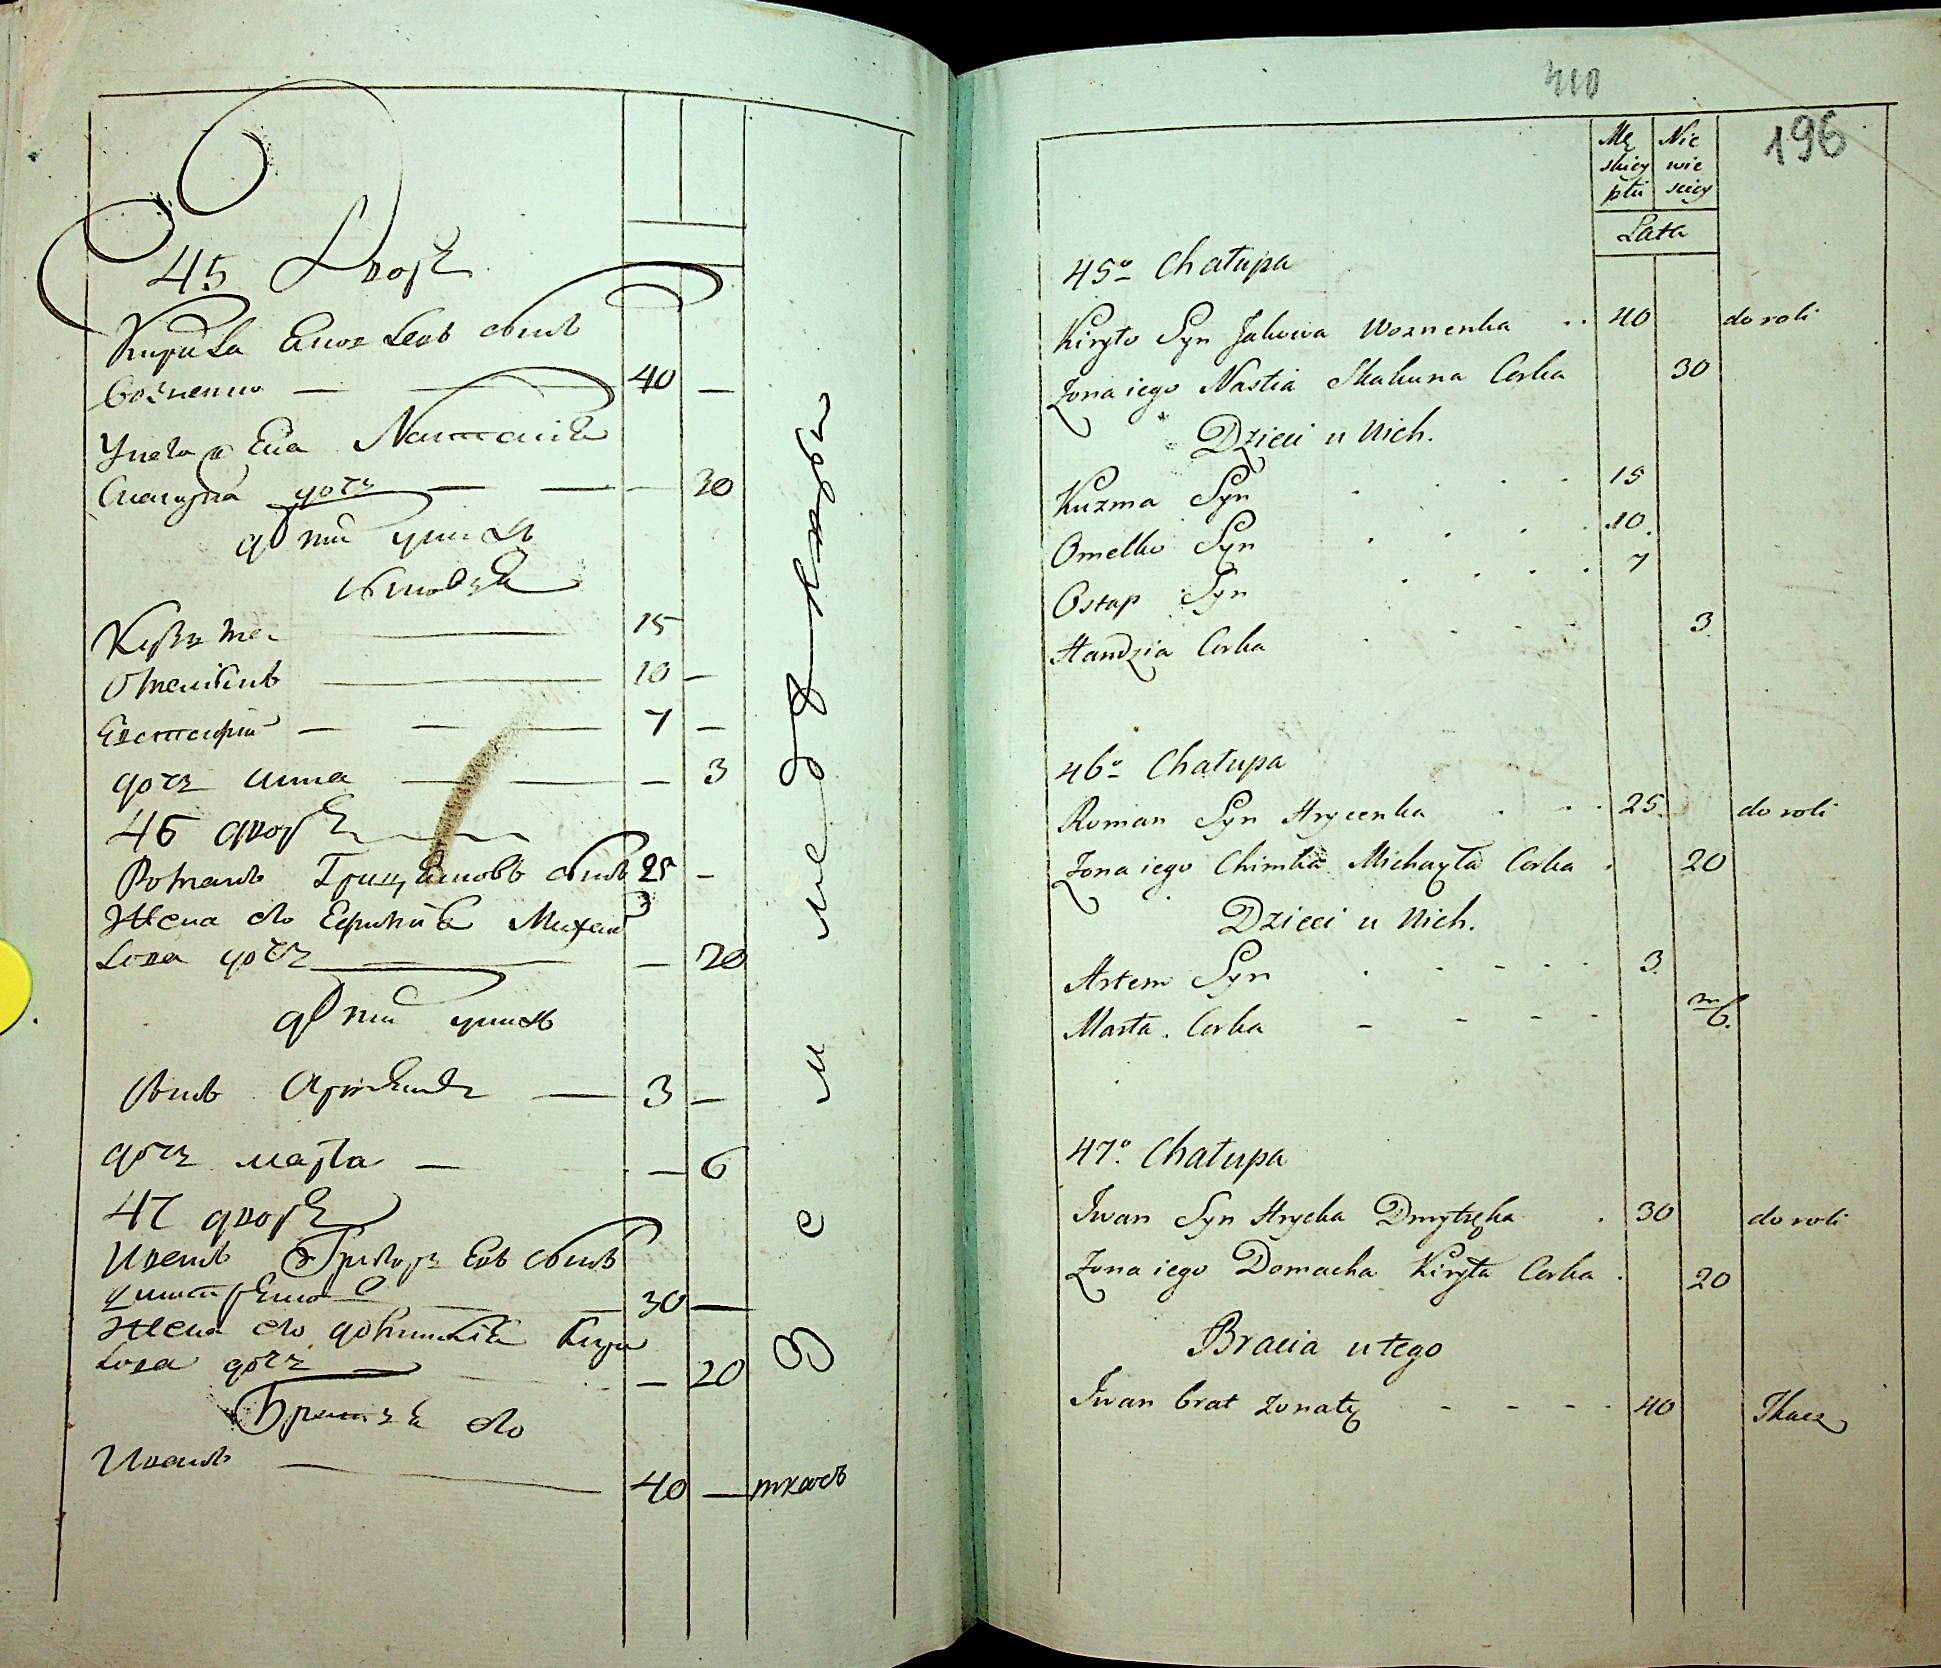 45 Дворъ
Кирила Яковлевъ сынъ
Возненко — 40 —
У него жена Настасия
Скакуна дочь — 30
дѣти у нихъ
сыновья
Кузьма — 15
Омелянъ — 10 —
Евстафий — 7 —
дочь Анна — 3
46 дворъ
Романъ Грицѣновъ сынъ 25 —
Жена его Ефимия Михай
лова дочь — 20
дѣти у нихъ
Сынъ Артемъ — 3 —
дочь марта — 6
47 дворъ
Иванъ Григорьевъ сынъ
Дмитренко — 30 —
Жена его домникия Кири
лова дочь — 20
Братья его
Иванъ — 40 — ткачъ
земледѣлецъ
410
196
Mę Nie
skiey wie
płci sciey
Lata
45º Chałupa
Kiryło Syn Jakowa Woznenka 40 do roli
Zona iego Nastia Skakuna Corka 30
Dzieci u Nich.
Kuzma Syn 15
Omelko Syn 10.
Ostap Syn 7
Handzia Corka 3.
46º Chałupa
Roman Syn Hrycenka 25. do roli
Zona iego Chimka Michayła Corka 20
Dzieci u Nich.
Artem Syn 3.
Marta. Corka m/6.
47º. Chałupa
Iwan Syn Hrycka Dmytręka 30 do roli
Zona iego Domacha Kiryła Corka 20
Bracia u tego
Iwan brat zonaty 40 Tkacz